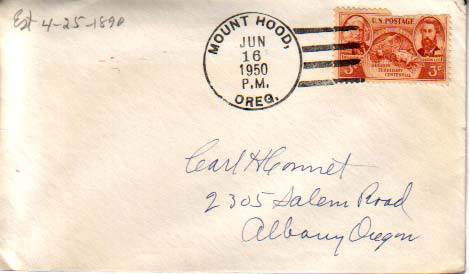 Est 4-25-1890
MOUNT HOOD,
JUN
16
1950
P.M.
OREG.
U.S. POSTAGE
OREGON
TERRITORY
CENTENNIAL
3¢ 3¢
Carl H Connet
2305 Salem Road
Albany Oregon